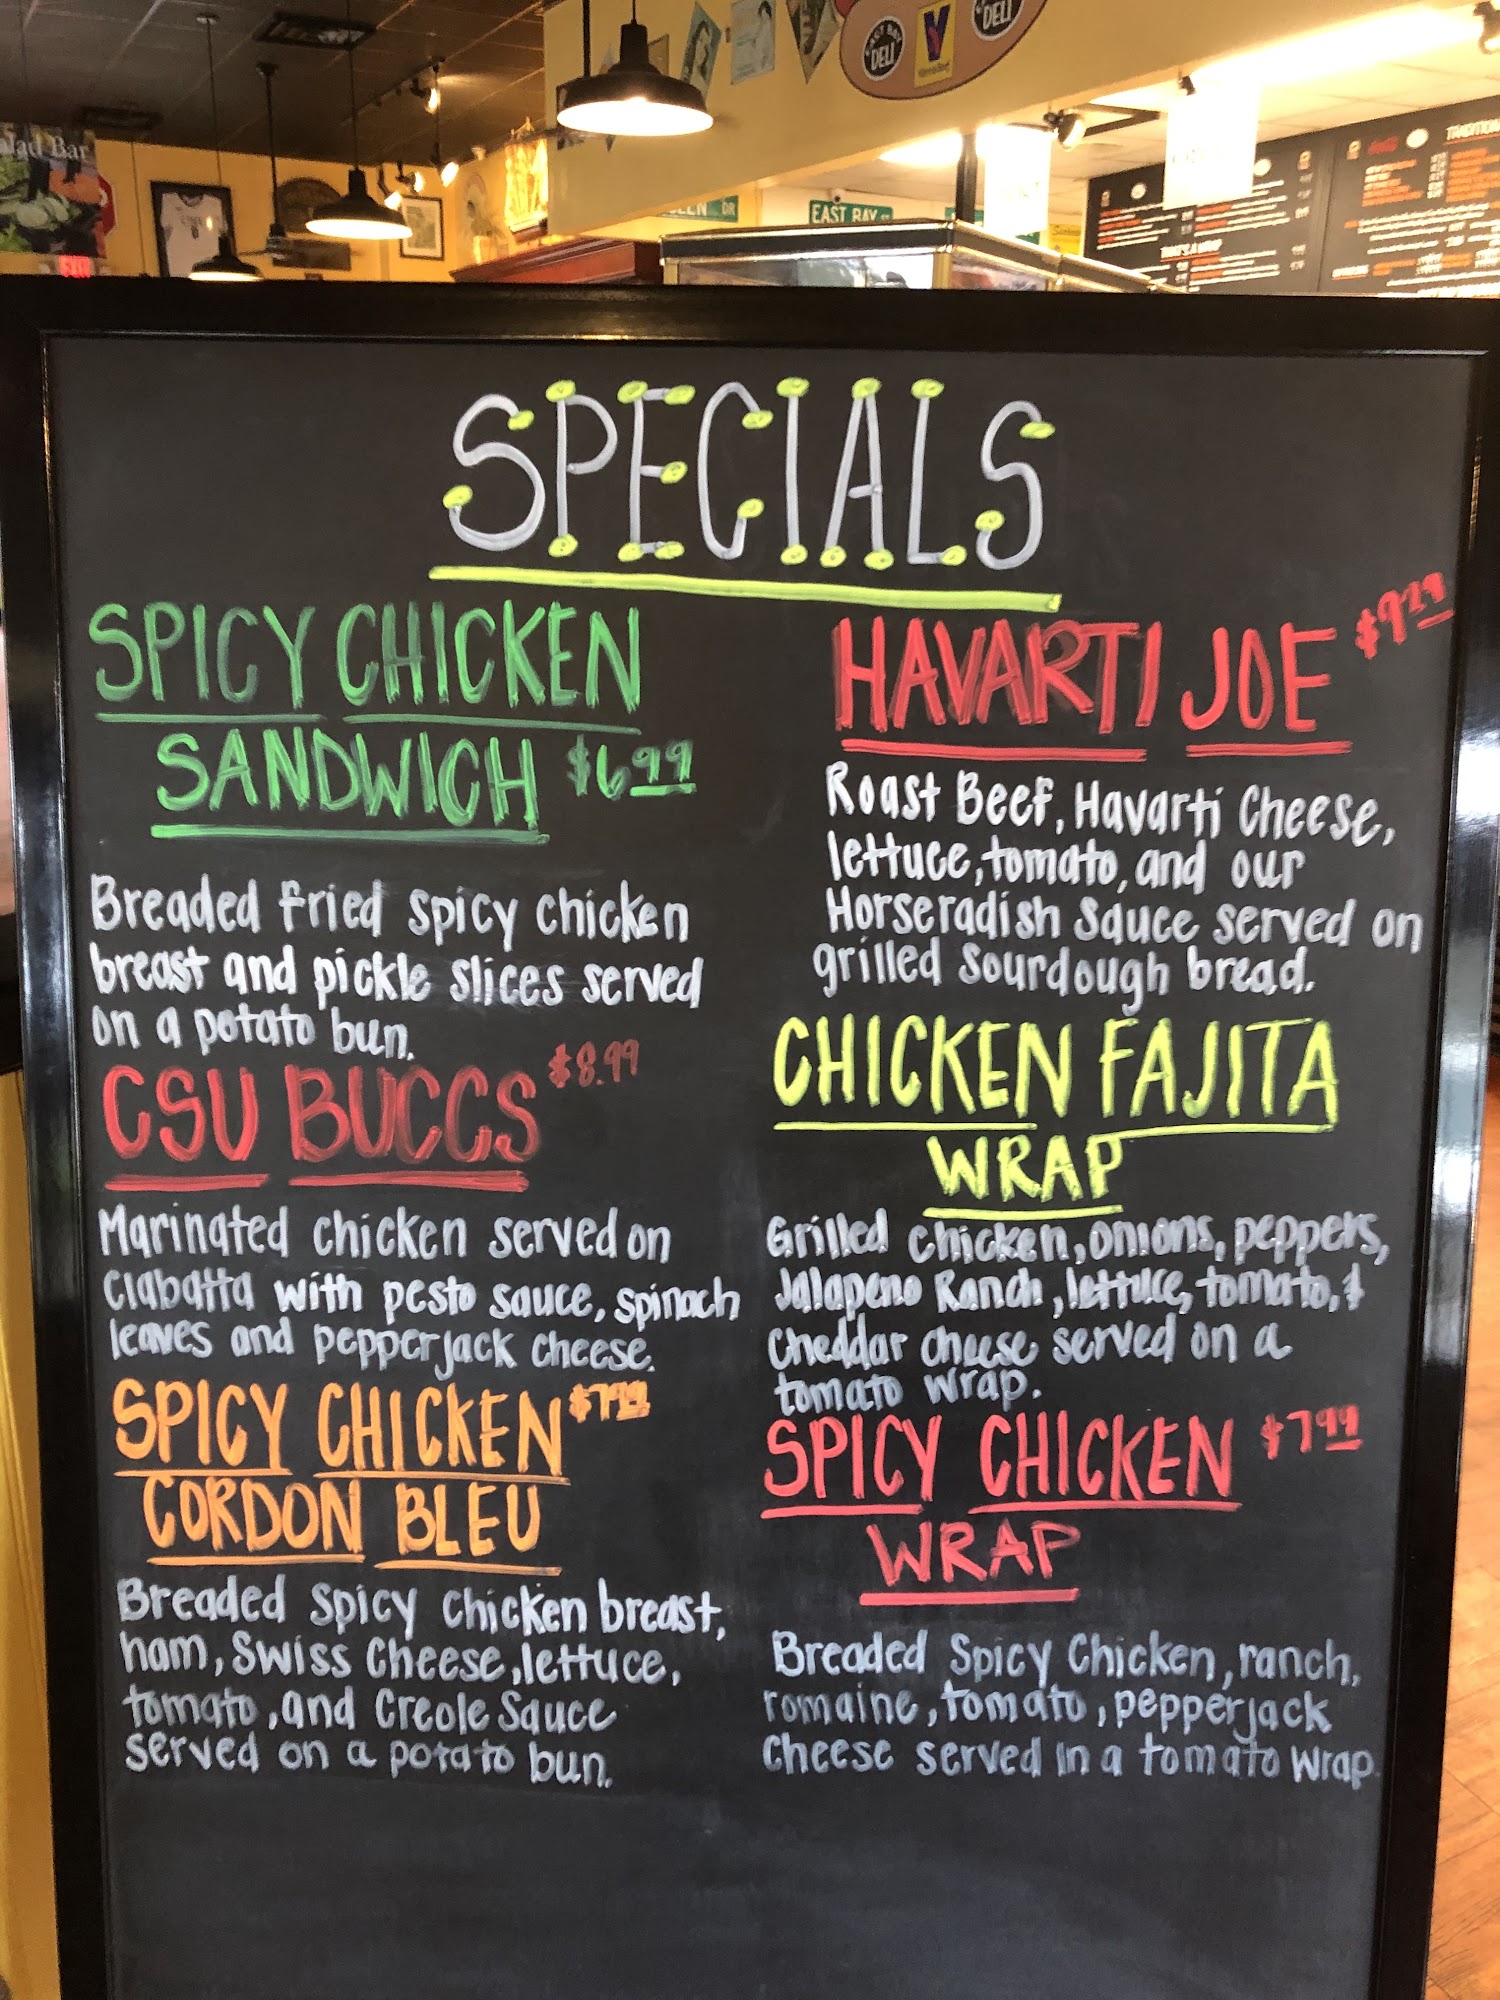 alad Bar
EXIT
EAST BAY
DELI
EAST BAY ST
DR
THAT'S A WRAP
SPECIALS
SPICY CHICKEN
SANDWICH $6.99
Breaded fried spicy chicken
breast and pickle slices served
on a potato bun.
CSU BUCCS $8.99
Marinated chicken served on
Ciabatta with pesto sauce, spinach
leaves and pepperjack cheese.
SPICY CHICKEN $7.99
CORDON BLEU
Breaded Spicy Chicken breast,
ham, Swiss Cheese, lettuce,
tomato, and Creole Sauce
served on a potato bun.
HAVARTI JOE
Roast Beef, Havarti Cheese,
lettuce, tomato, and our
Horseradish Sauce served on
grilled Sourdough bread.
CHICKEN FAJITA
WRAP
Grilled chicken, onions, peppers,
Jalapeno Ranch, lettuce, tomato, &
Cheddar cheese served on a
tomato wrap.
SPICY CHICKEN $7.99
WRAP
Breaded Spicy Chicken, ranch,
romaine, tomato, pepperjack
Cheese served in a tomato wrap.